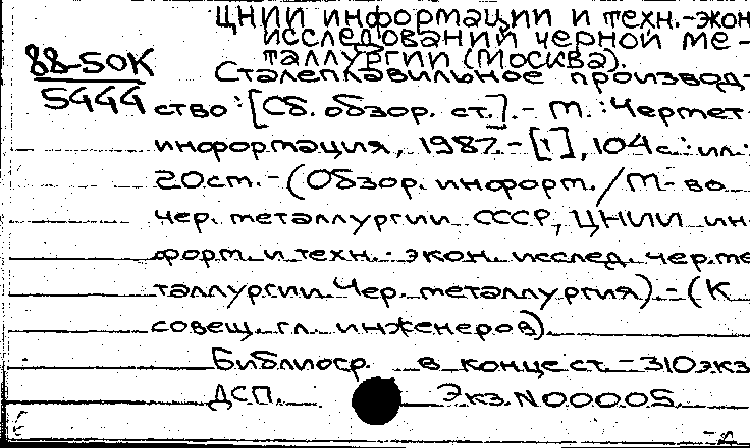 ЦНИИ информации и техн.-экон
исследований черной ме-
таллургии (Москва).
88-50К
5444
Сталеплавильное производ-
ство: [Сб. обзор. ст.]. - М.: Чермет
информация, 1987. - [1], 104 с.: ил.;
20 см. - (Обзор. информ. / М-во
чер. металлургии СССР, ЦНИИ ин
форм. и техн.-экон. исслед. чер. ме
таллургии. Чер. металлургия) - (К
совещ. гл. инженеров).
Библиогр. в конце ст. - 310 экз
ДСП. Экз. N 00005